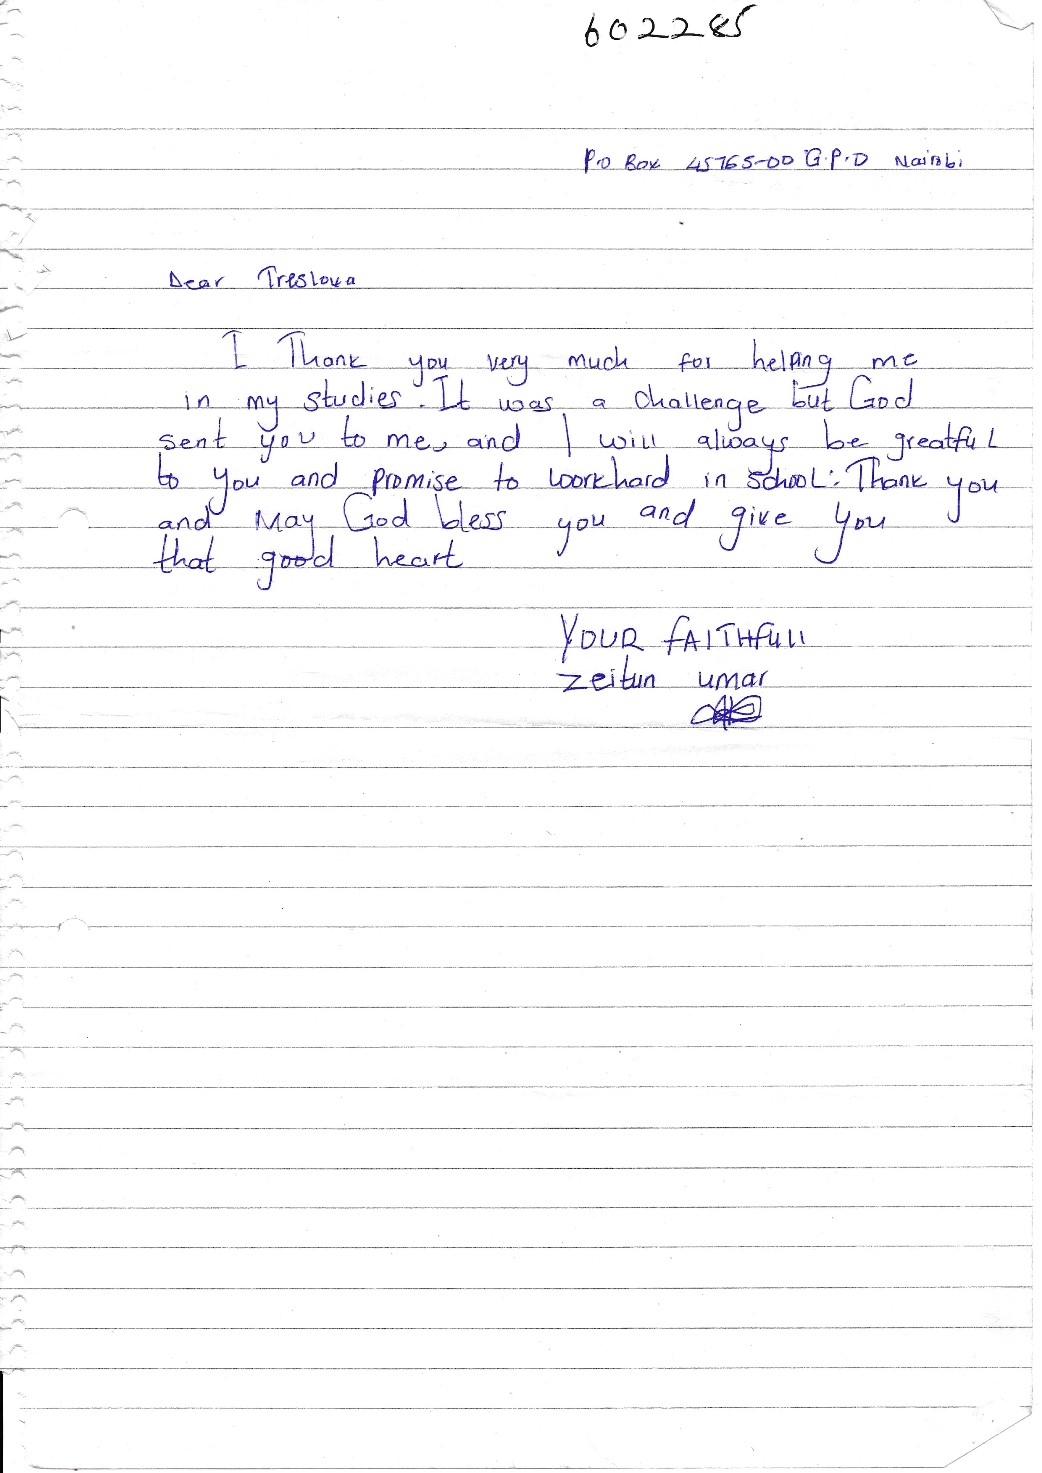 602285
P.o Box 45765-00 G.P.O Nairobi
Dear Treslova
I Thank you very much for helping me
in my studies. It was a challenge but God
sent you to me, and I will always be greatful
to you and promise to workhard in school. Thank you
and May God bless you and give you
that good heart
YOUR FAITHFULL
zeitun umar